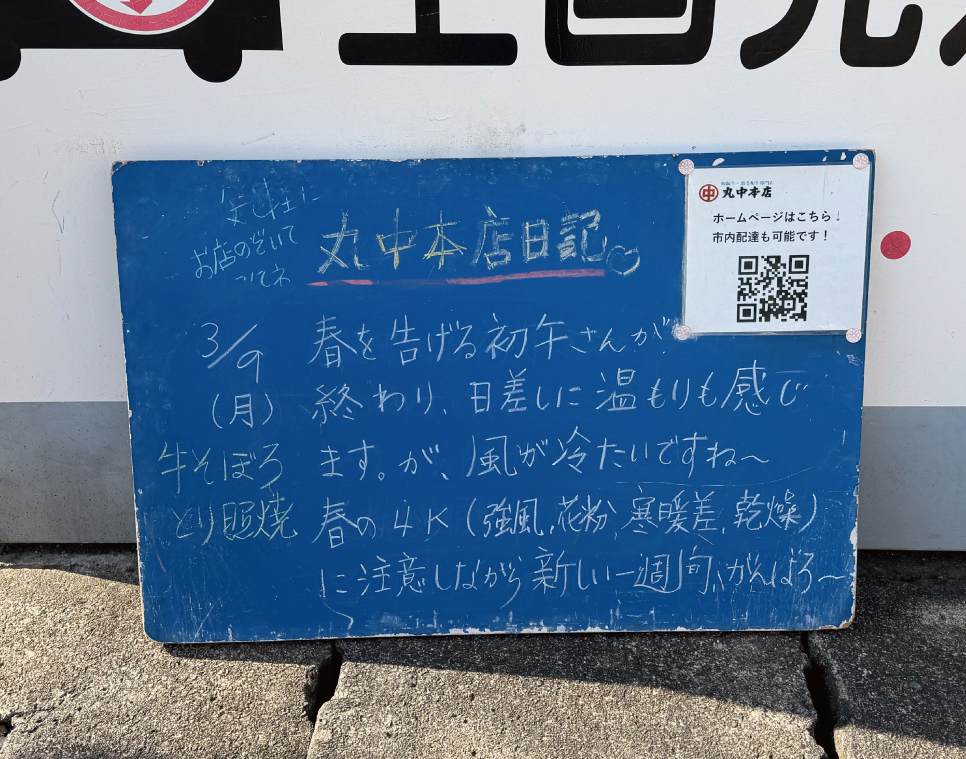 お店のぞいて
ってネ
丸中本店日記♡
3/9
(月)
牛そぼろ
とり照焼
春を告げる初午さんが
終わり、日差しに温もりも感じ
ます。が、風が冷たいですね～
春の4K(強風、花粉、寒暖差、乾燥)
に注意しながら新しい一週間、がんばろ～
丸中本店
ホームページはこちら↓
市内配達も可能です！